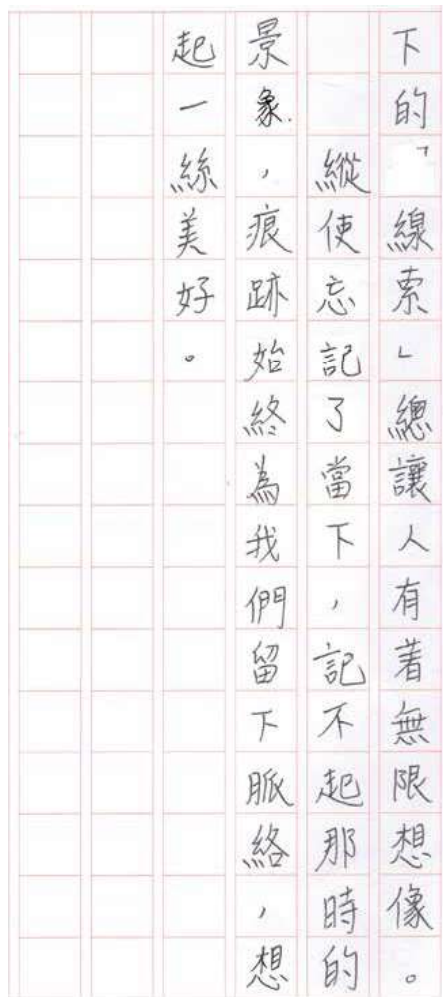 下的「線索」總讓人有著無限想像。
縱使忘記了當下，記不起那時的
景象，痕跡始終為我們留下脈絡，想
起一絲美好。